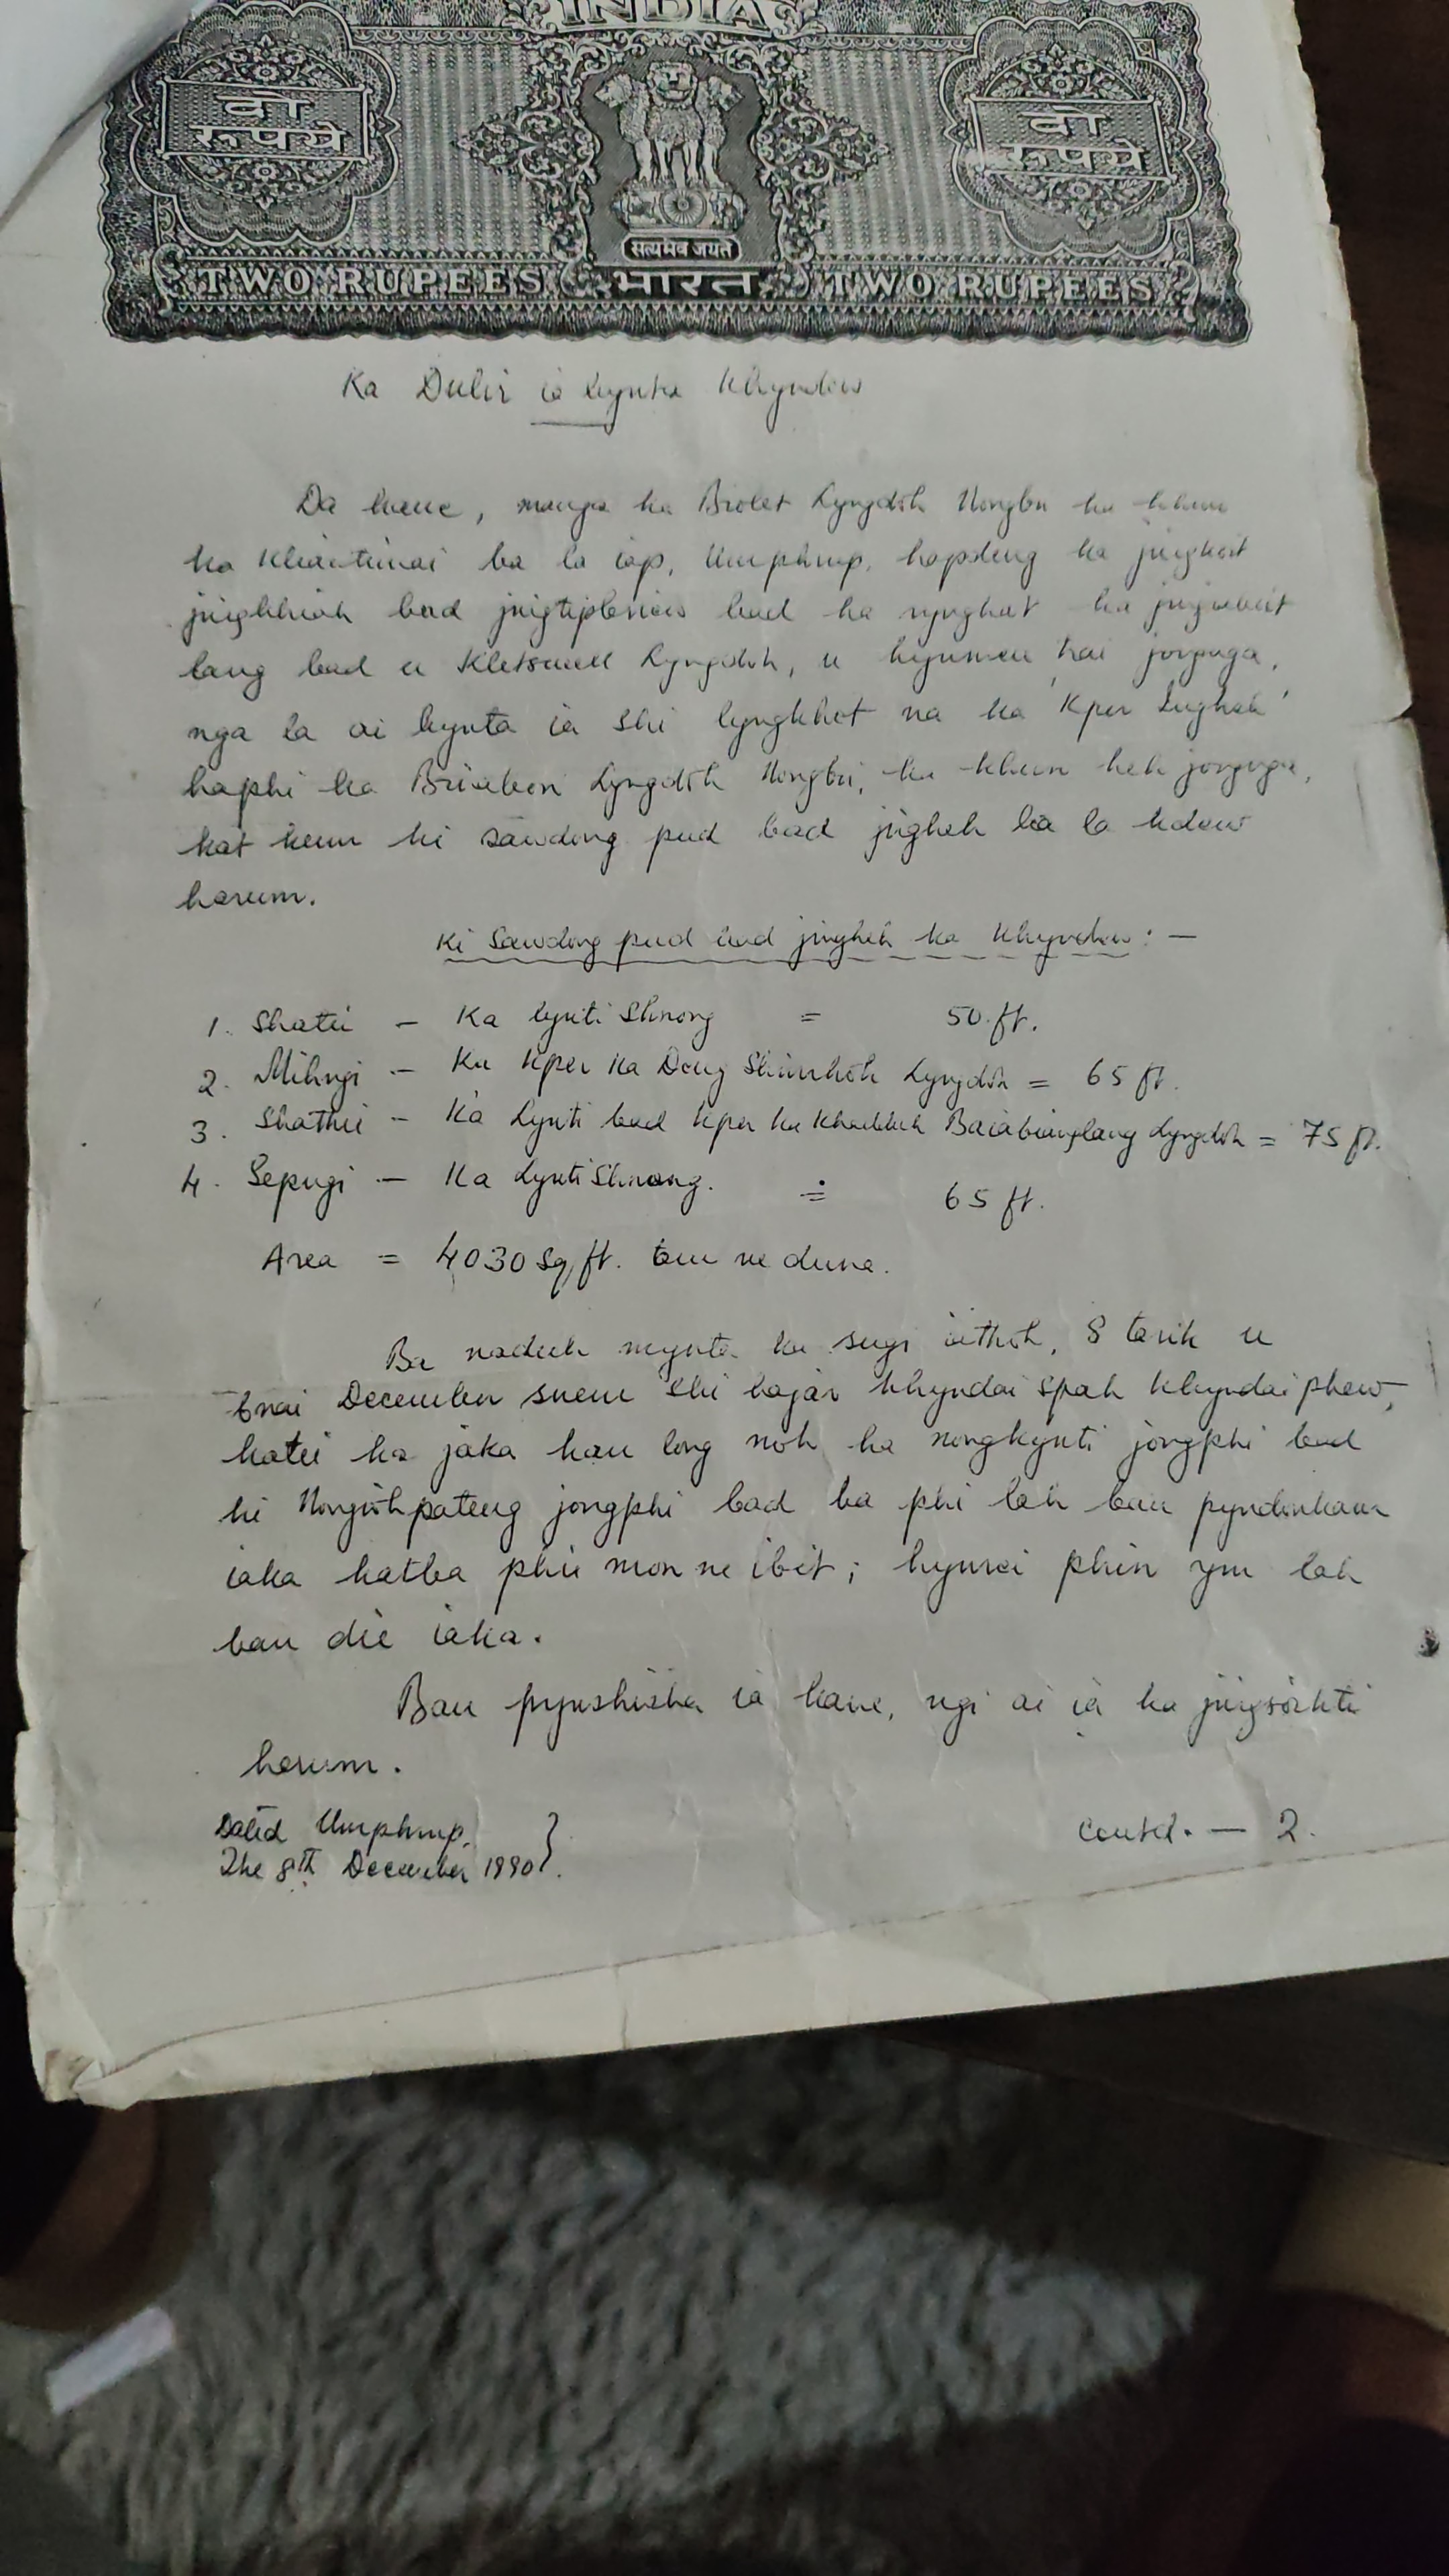 INDIA
दो रूपये
दो रूपये
सत्यमेव जयते
TWO RUPEES भारत TWO RUPEES
Ka Dulir ia kynta khyndew
Da kane, ma nga ka Brolet Lyngdoh Nongbri ka khun
ka Khiantimai ba la ïap, Umphrup, hapdeng ka jingkoit
jingkhiah bad jingtiplem bad ka nynghat ka jingiabeit
lang bad u Kletswell Lyngdoh, u hynmen jongnga,
nga la ai kynta ia shi lyngkhot na ka 'Kper Ingheh'
haphi ka Lyngdoh Nongbri, ka khun heh jongnga,
kat kum ki sawdong pud bad jingheh ba la kdew
harum.
Ki Sawdong pud bad jingheh ka khyndew : —
1. Shatei — Ka lynti Shnong = 50 ft.
2. Mihngi — Ka Kper ka Lyngdoh = 65 ft.
3. Shathie — Ka Lynti bad kper ka khadduh Lyngdoh = 75 ft.
4. Sepngi — Ka Lynti Shnong. = 65 ft.
Area = 4030 Sq, ft. tam ne duna.
Ba naduh mynta ka sngi 8 tarik u
bnai December snem shi hajar khyndai spah khyndai phew,
katei ka jaka kan long noh ka nongkynti jongphi bad
ki Nongïoh pateng jongphi bad ba phi lah ban pyndonkam
iaka katba phi mon ne ibit ; hynrei phin ym lah
ban die iaka.
Ban pynshisha ia kane, ngi ai ia ka jingsoikti
harum.
Dated Umphrup,
The 8th December 1990 } .
Contd. — 2.